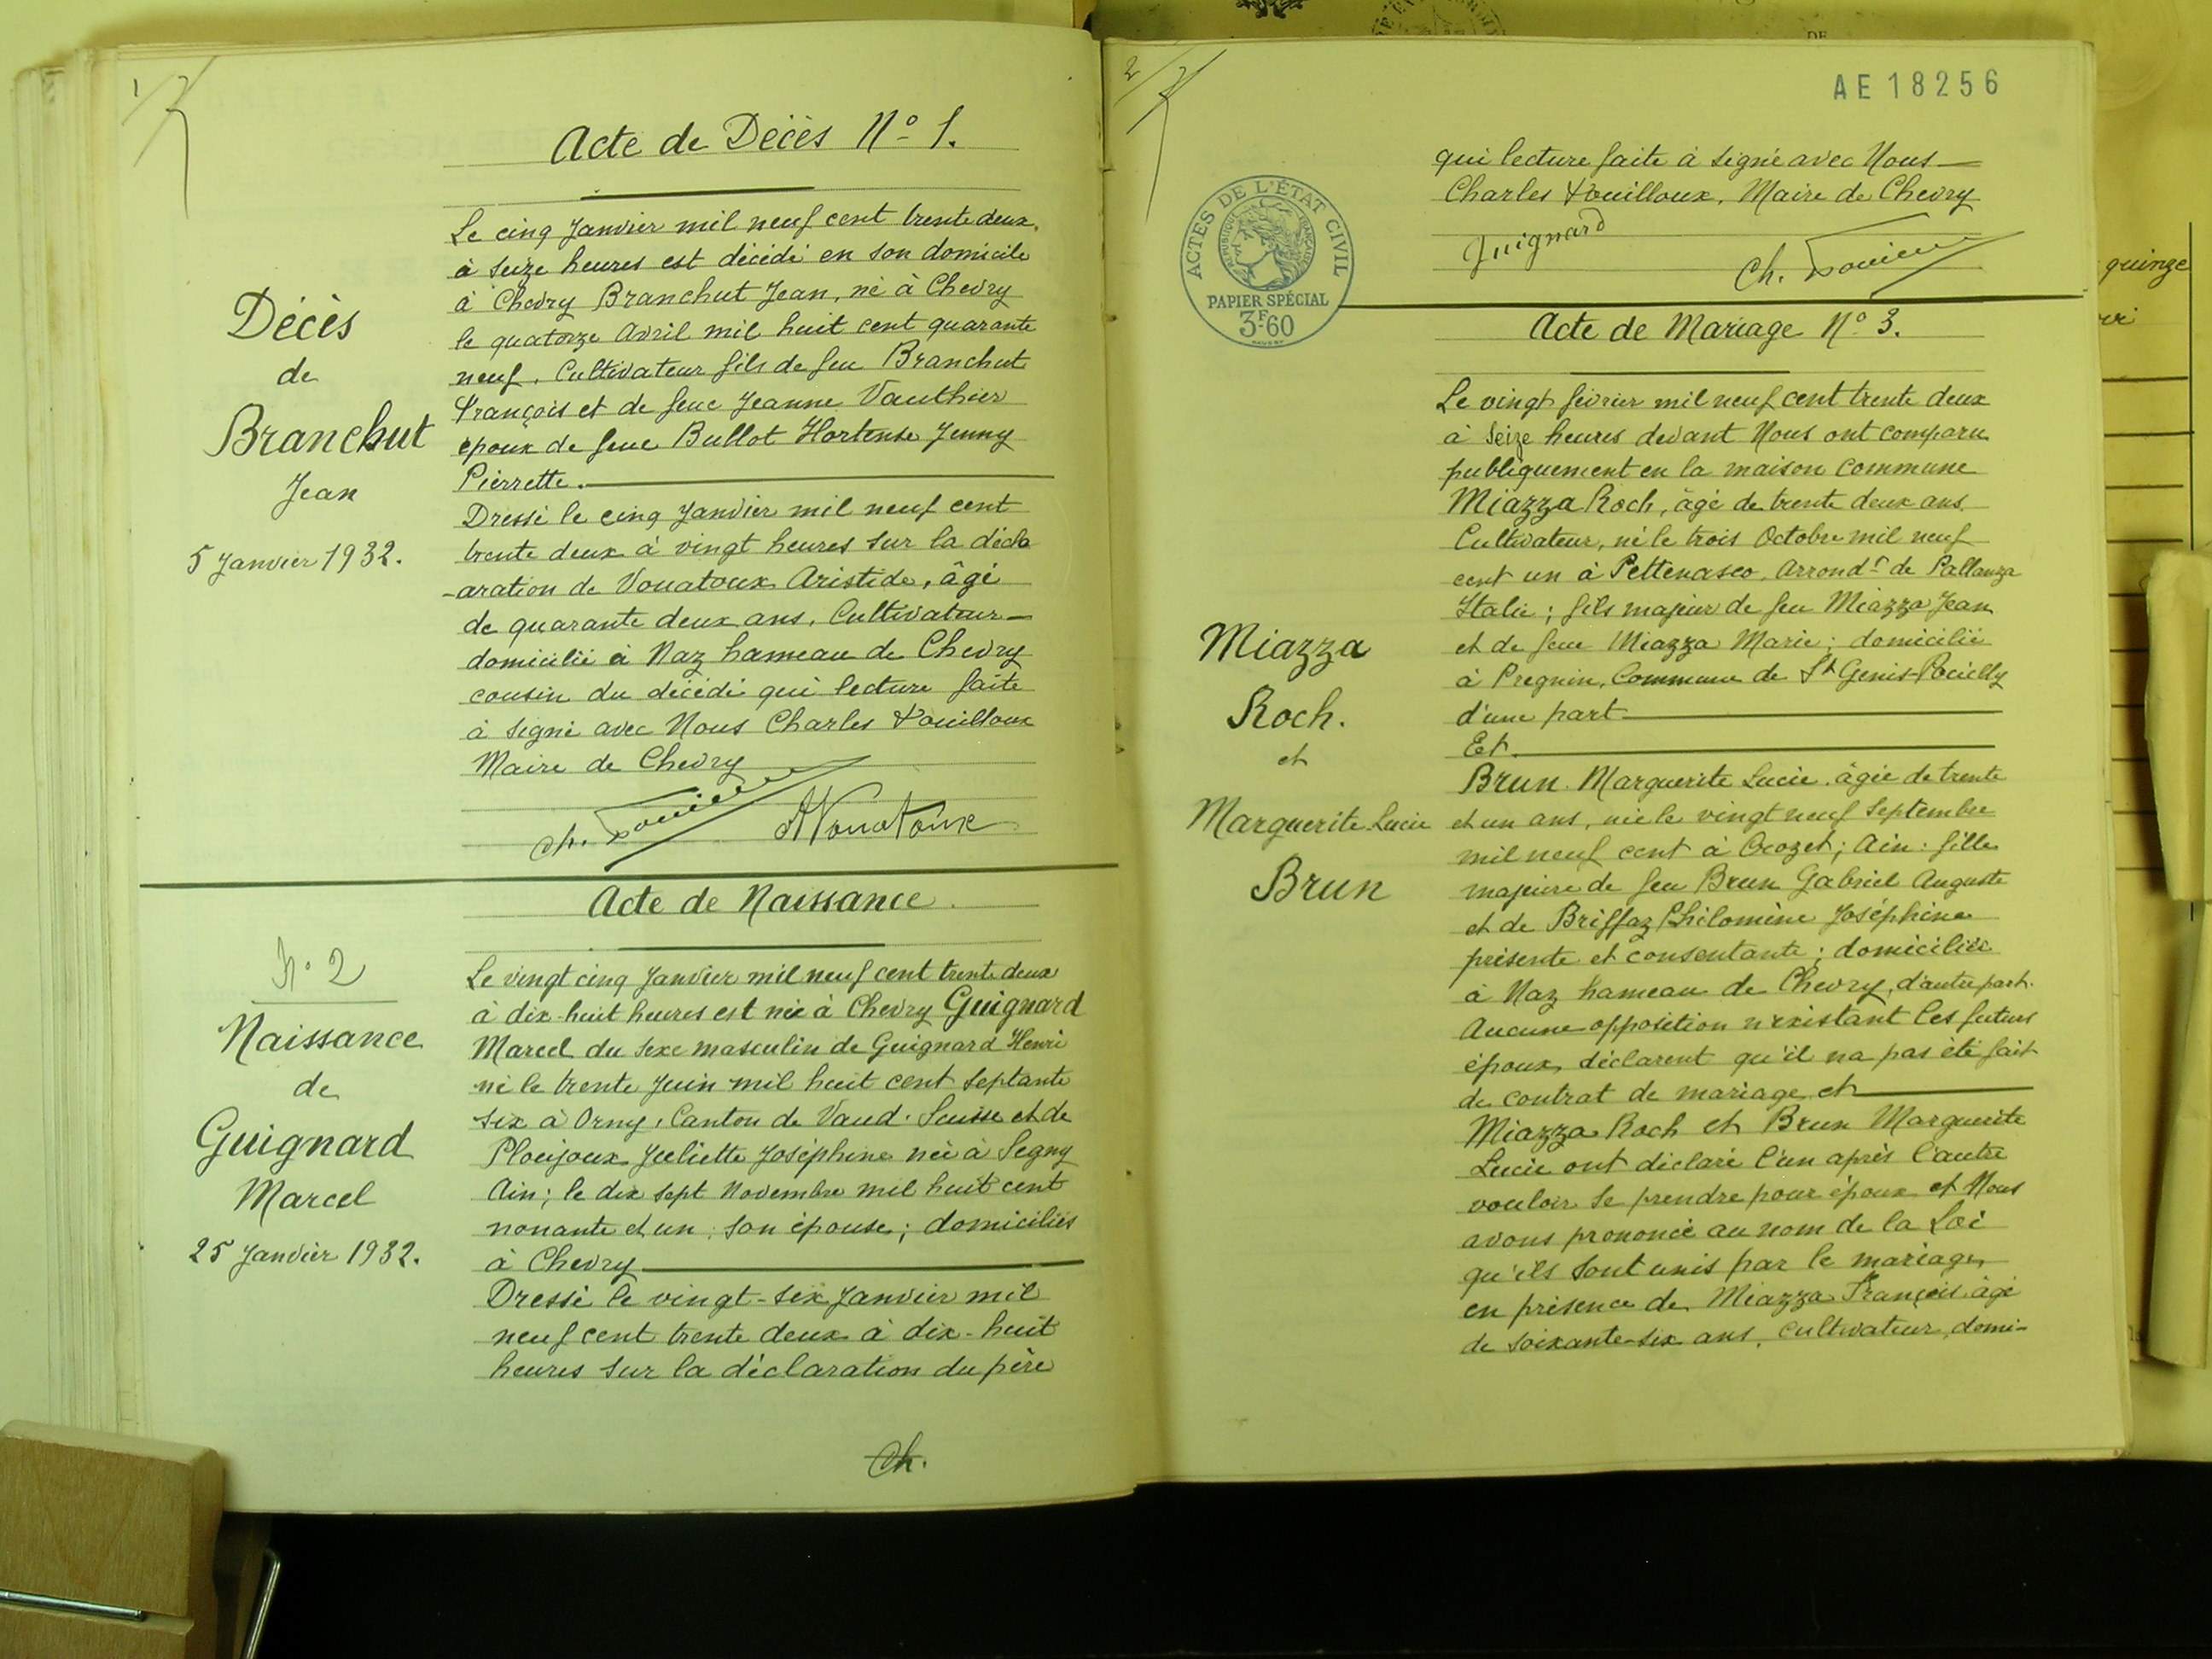 1
Acte de Décès N° 1.
Décès
de
Branchut
Jean
5 Janvier 1932.
Le cinq Janvier mil neuf cent trente deux,
à seize heures est décédé en son domicile
à Chevry Branchut Jean, né à Chevry
le quatorze Avril mil huit cent quarante
neuf, Cultivateur fils de feu Branchut
François et de feue Jeanne Vauthier
époux de feue Bullot Hortense Jenny
Pierrette.
Dressé le cinq Janvier mil neuf cent
trente deux à vingt heures sur la décla
-aration de Vouatoux Aristide, âgé
de quarante deux ans, Cultivateur
domicilié à Naz hameau de Chevry
cousin du décédé qui lecture faite
à signé avec Nous Charles
Maire de Chevry
Ch.
AVouatoux
Acte de Naissance.
N° 2
Naissance
de
Guignard
Marcel
25 Janvier 1932.
Le vingt cinq Janvier mil neuf cent trente deux
à dix-huit heures est née à Chevry Guignard
Marcel du sexe masculin de Guignard Henri
né le trente Juin mil huit cent septante
six à Orny, Canton de Vaud. Suisse et de
Ploujoux Juliette Joséphine née à Segny
Ain; le dix sept Novembre mil huit cent
nonante et un, son épouse; domiciliés
à Chevry
Dressé le vingt-six Janvier mil
neuf cent trente deux à dix-huit
heures sur la déclaration du père
Ch.
2
AE 18256
qui lecture faite à signé avec Nous
Charles Maire de Chevry
Guignard
Ch.
ACTES DE L'ÉTAT CIVIL
RÉPUBLIQUE FRANÇAISE
PAPIER SPÉCIAL
3F60
Acte de Mariage N° 3.
Miazza
Roch.
et
Marguerite Lucie
Brun
Le vingt février mil neuf cent trente deux
à seize heures devant Nous ont comparu
publiquement en la maison commune
Miazza Roch, âgé de trente deux ans,
Cultivateur, né le trois Octobre mil neuf
cent un à Pettenasco, Arrondt de Pallanza
Italie; fils majeur de feu Miazza Jean
et de feue Miazza Marie; domicilié
à Pregnin, Commune de St Genis-Pouilly
d'une part
Et
Brun Marguerite Lucie, âgée de trente
et un ans, née le vingt neuf Septembre
mil neuf cent à Crozet; Ain: fille
majeure de feu Brun Gabriel Auguste
et de Briffaz Philomène Joséphine
présente et consentante; domiciliée
à Naz hameau de Chevry, d'autre part.
Aucune opposition n'existant les futurs
époux, déclarent qu'il na pas été fait
de contrat de mariage et
Miazza Roch et Brun Marguerite
Lucie ont déclaré l'un après l'autre
vouloir se prendre pour époux et Nous
avons prononcé au nom de la Loi
qu'ils sont unis par le mariage,
en présence de Miazza François âgé
de soixante-six ans, cultivateur, domi-
quinze